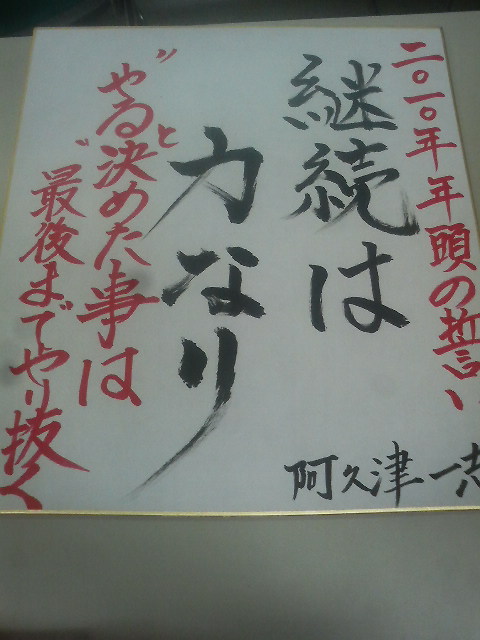 二〇一〇年年頭の誓い
継続は
力なり
"やると決めた事は
最後までやり抜く"
阿久津一志